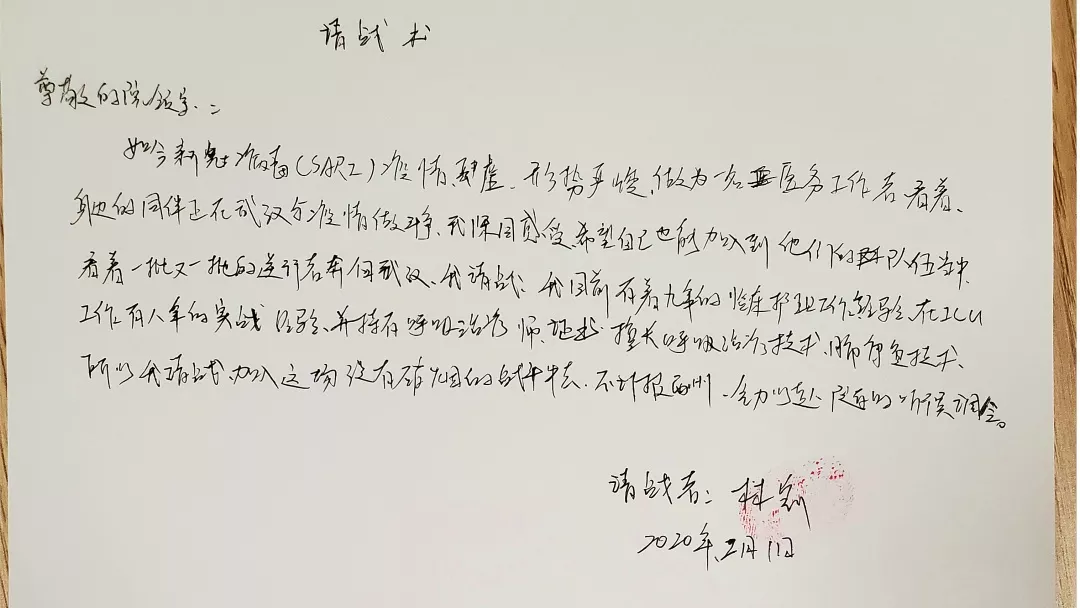 请战书
尊敬的院领导：
如今新冠病毒(SARI)疫情肆虐，形势严峻，做为一名医务工作者看着
身边的同伴正在武汉与疫情做斗争，我深同感受，希望自己也能加入到他们的队伍当中，
看着一批又一批的逆行者奔向武汉，我请战，我目前有着九年的临床护理工作经验，在ICU
工作有八年的实战经验，并持有呼吸治疗师证书，擅长呼吸治疗技术，肺康复技术，
所以我请战加入这场没有硝烟的战斗中去，不计报酬，全力以赴，
请战者：林
2020年2月11日